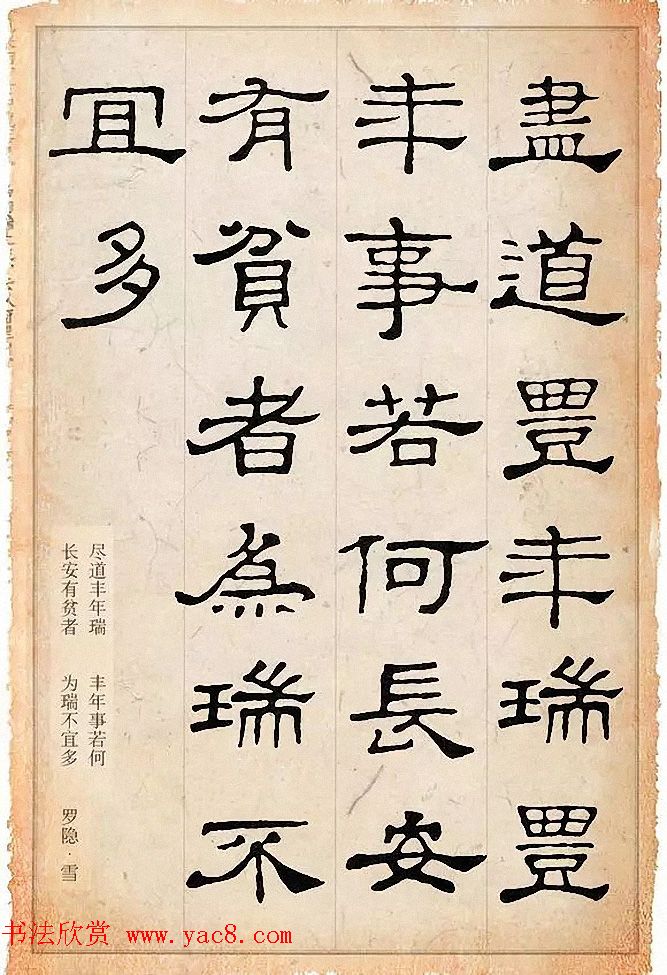 盡道豐年瑞豐
年事若何長安
有貧者為瑞不
宜多
尽道丰年瑞 丰年事若何
长安有贫者 为瑞不宜多 罗隐·雪
书法欣赏 www.yac8.com